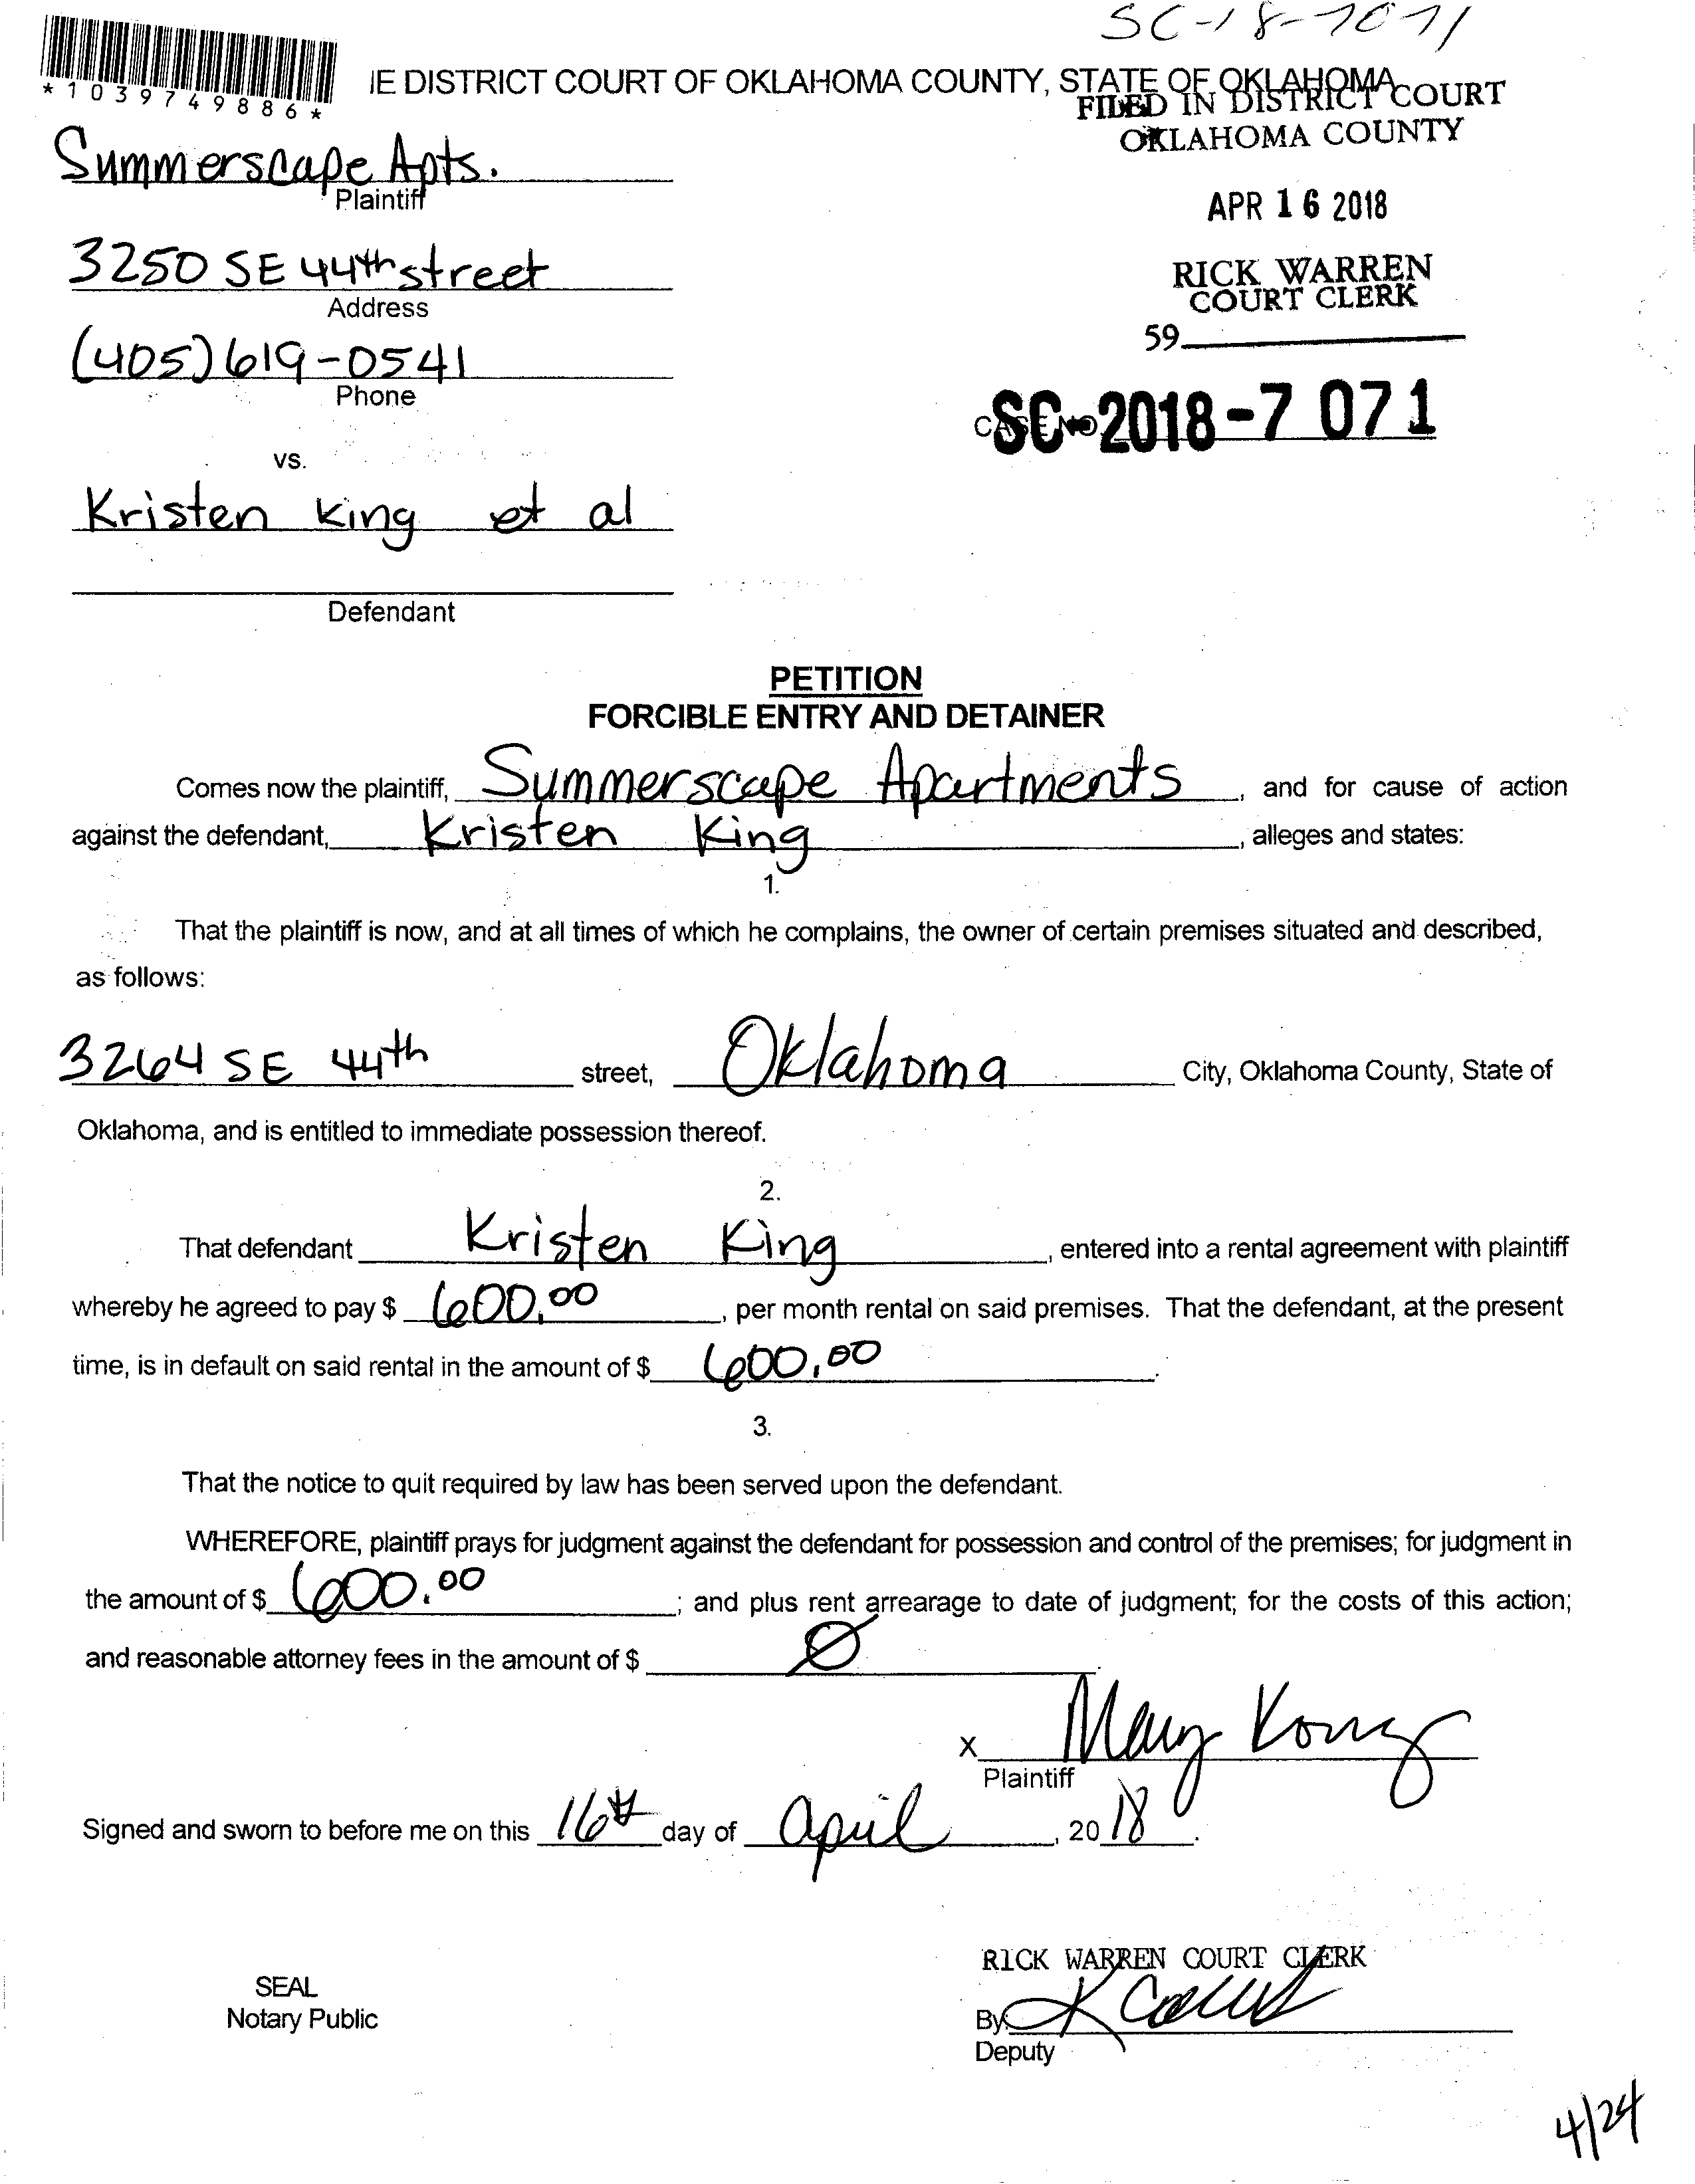 SC-18-7071
*1039749886*
IE DISTRICT COURT OF OKLAHOMA COUNTY, STATE OF OKLAHOMA
FILED IN DISTRICT COURT
OKLAHOMA COUNTY
Summerscape Apts.
Plaintiff
APR 16 2018
3250 SE 44th street
Address
RICK WARREN
COURT CLERK
59
(405) 619-0541
Phone
CASE NO. SC-2018-7071
vs.
Kristen King et al
Defendant
PETITION
FORCIBLE ENTRY AND DETAINER
Comes now the plaintiff, Summerscape Apartments, and for cause of action
against the defendant, Kristen King, alleges and states:
1.
That the plaintiff is now, and at all times of which he complains, the owner of certain premises situated and described,
as follows:
3264 SE 44th street, Oklahoma City, Oklahoma County, State of
Oklahoma, and is entitled to immediate possession thereof.
2.
That defendant Kristen King, entered into a rental agreement with plaintiff
whereby he agreed to pay $ 600.00, per month rental on said premises. That the defendant, at the present
time, is in default on said rental in the amount of $ 600.00.
3.
That the notice to quit required by law has been served upon the defendant.
WHEREFORE, plaintiff prays for judgment against the defendant for possession and control of the premises; for judgment in
the amount of $ 600.00; and plus rent arrearage to date of judgment; for the costs of this action;
and reasonable attorney fees in the amount of $ Ø.
X Mary Kong
Plaintiff
Signed and sworn to before me on this 16th day of April, 2018.
RICK WARREN COURT CLERK
SEAL
Notary Public
By
Deputy
4/24